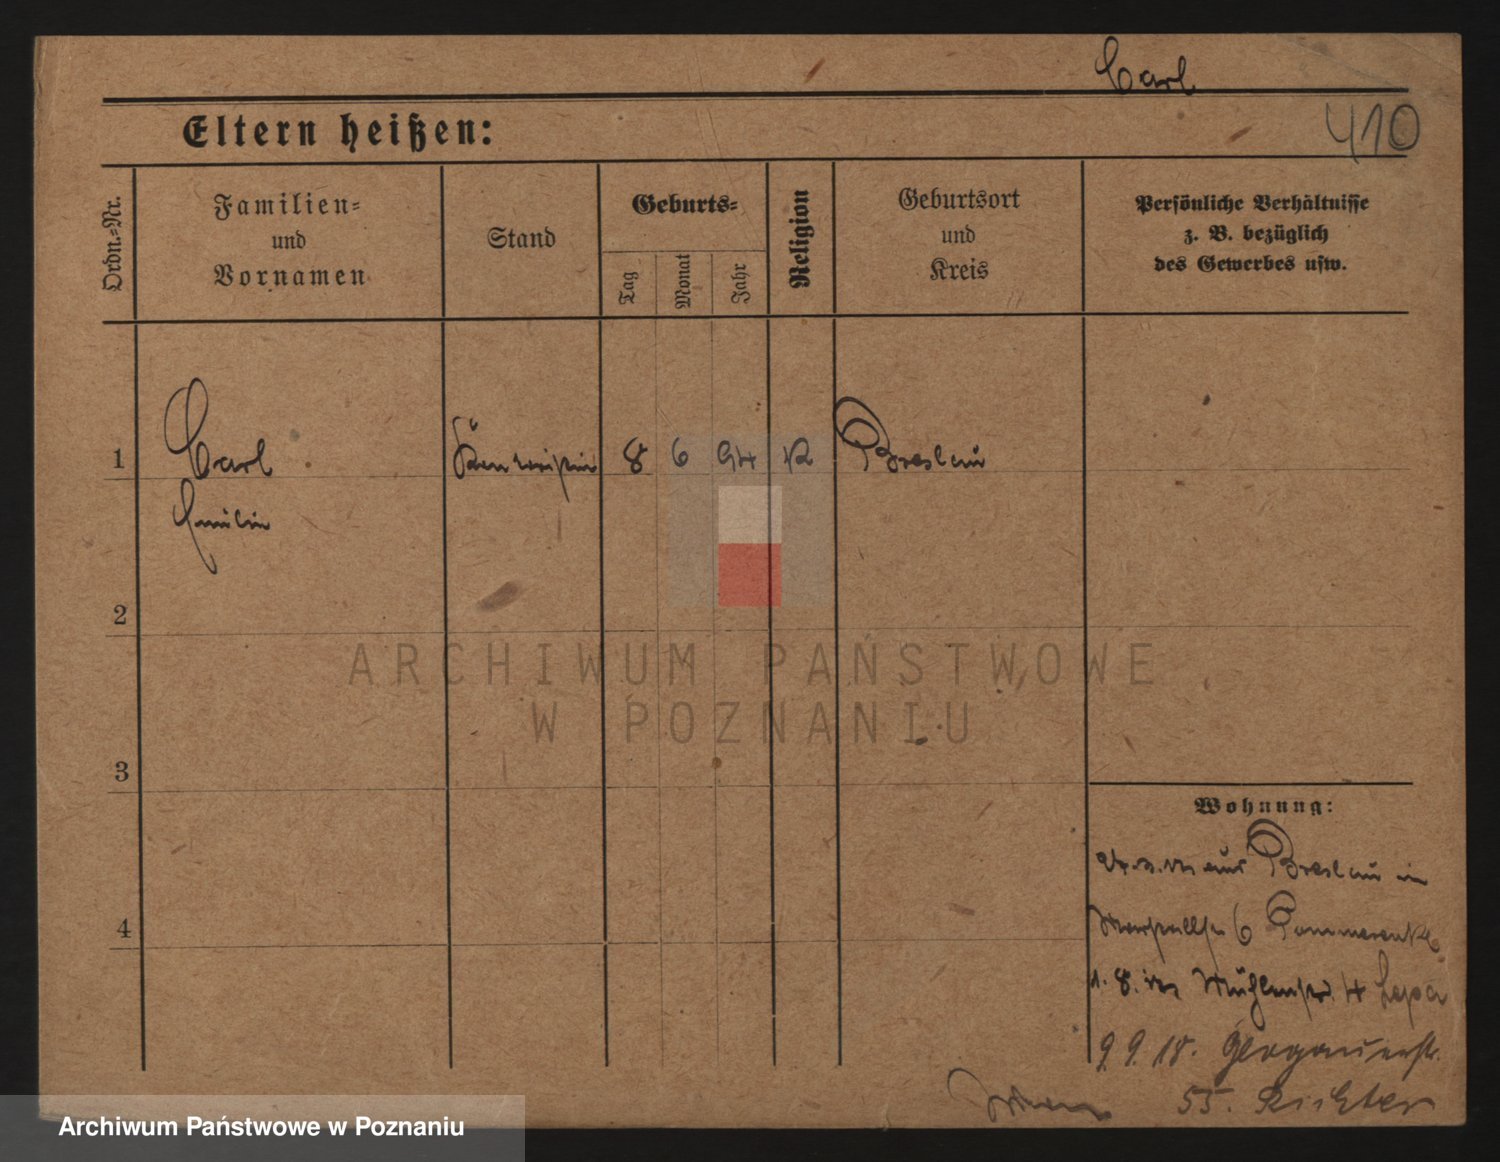 Carl
410
Eltern heißen:
Ordn.=Nr.
Familien=
und
Vornamen
Stand
Geburts=
Tag
Monat
Jahr
Religion
Geburtsort
und
Kreis
Persönliche Verhältnisse
z. B. bezüglich
des Gewerbes usw.
1 Carl 8 6 94 K Breslau
Emilie
2
ARCHIWUM PAŃSTWOWE
W POZNANIU
3
Wohnung:
aus Breslau in
6 Pommerenke
4
1. 8. Mühlenstr. 4
9 9. 18. Glogauerstr.
55. Richter
Archiwum Państwowe w Poznaniu